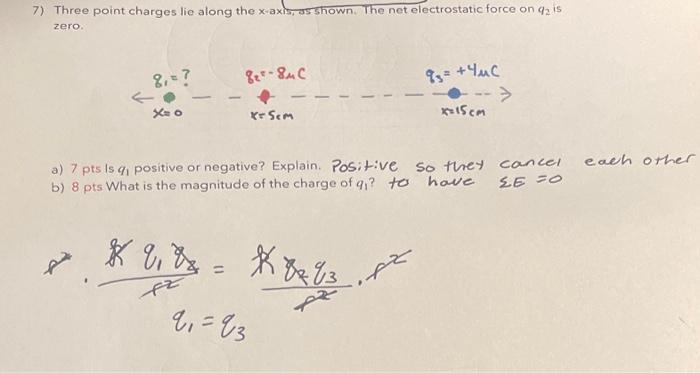 7) Three point charges lie along the x-axis, as shown. The net electrostatic force on q₂ is
zero.
q₁=? q₂=-8μC q₃=+4μC
x=0 x=5cm x=15cm
a) 7 pts Is q₁ positive or negative? Explain. Positive so they cancel each other
b) 8 pts What is the magnitude of the charge of q₁? to have ΣE=0
r² · K q₁ q₂ / r² = K q₂ q₃ / r² · r²
q₁ = q₃